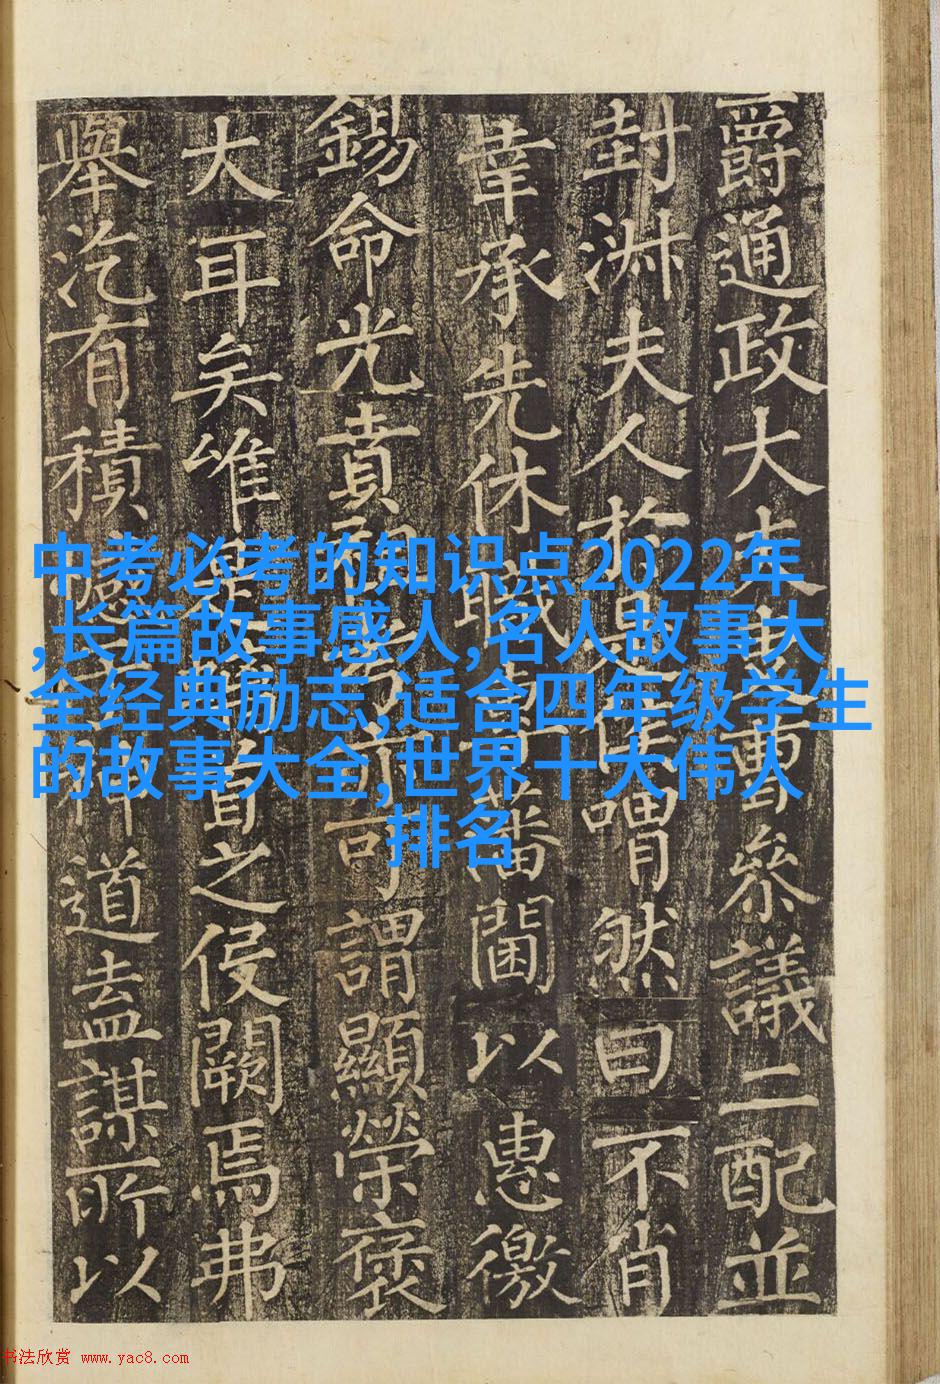 爵通政大夫參議二配並
封淑夫人於喟然曰不肖
幸承先休職藩閫以惠徼
錫命光賁可謂顯榮褒
大耳矣唯之侵闕焉弗
舉汔有積神道盍謀所以
中考必考的知识点2022年
,长篇故事感人,名人故事大
全经典励志,适合四年级学生
的故事大全,世界十大伟人
排名
书法欣赏 www.yac8.com